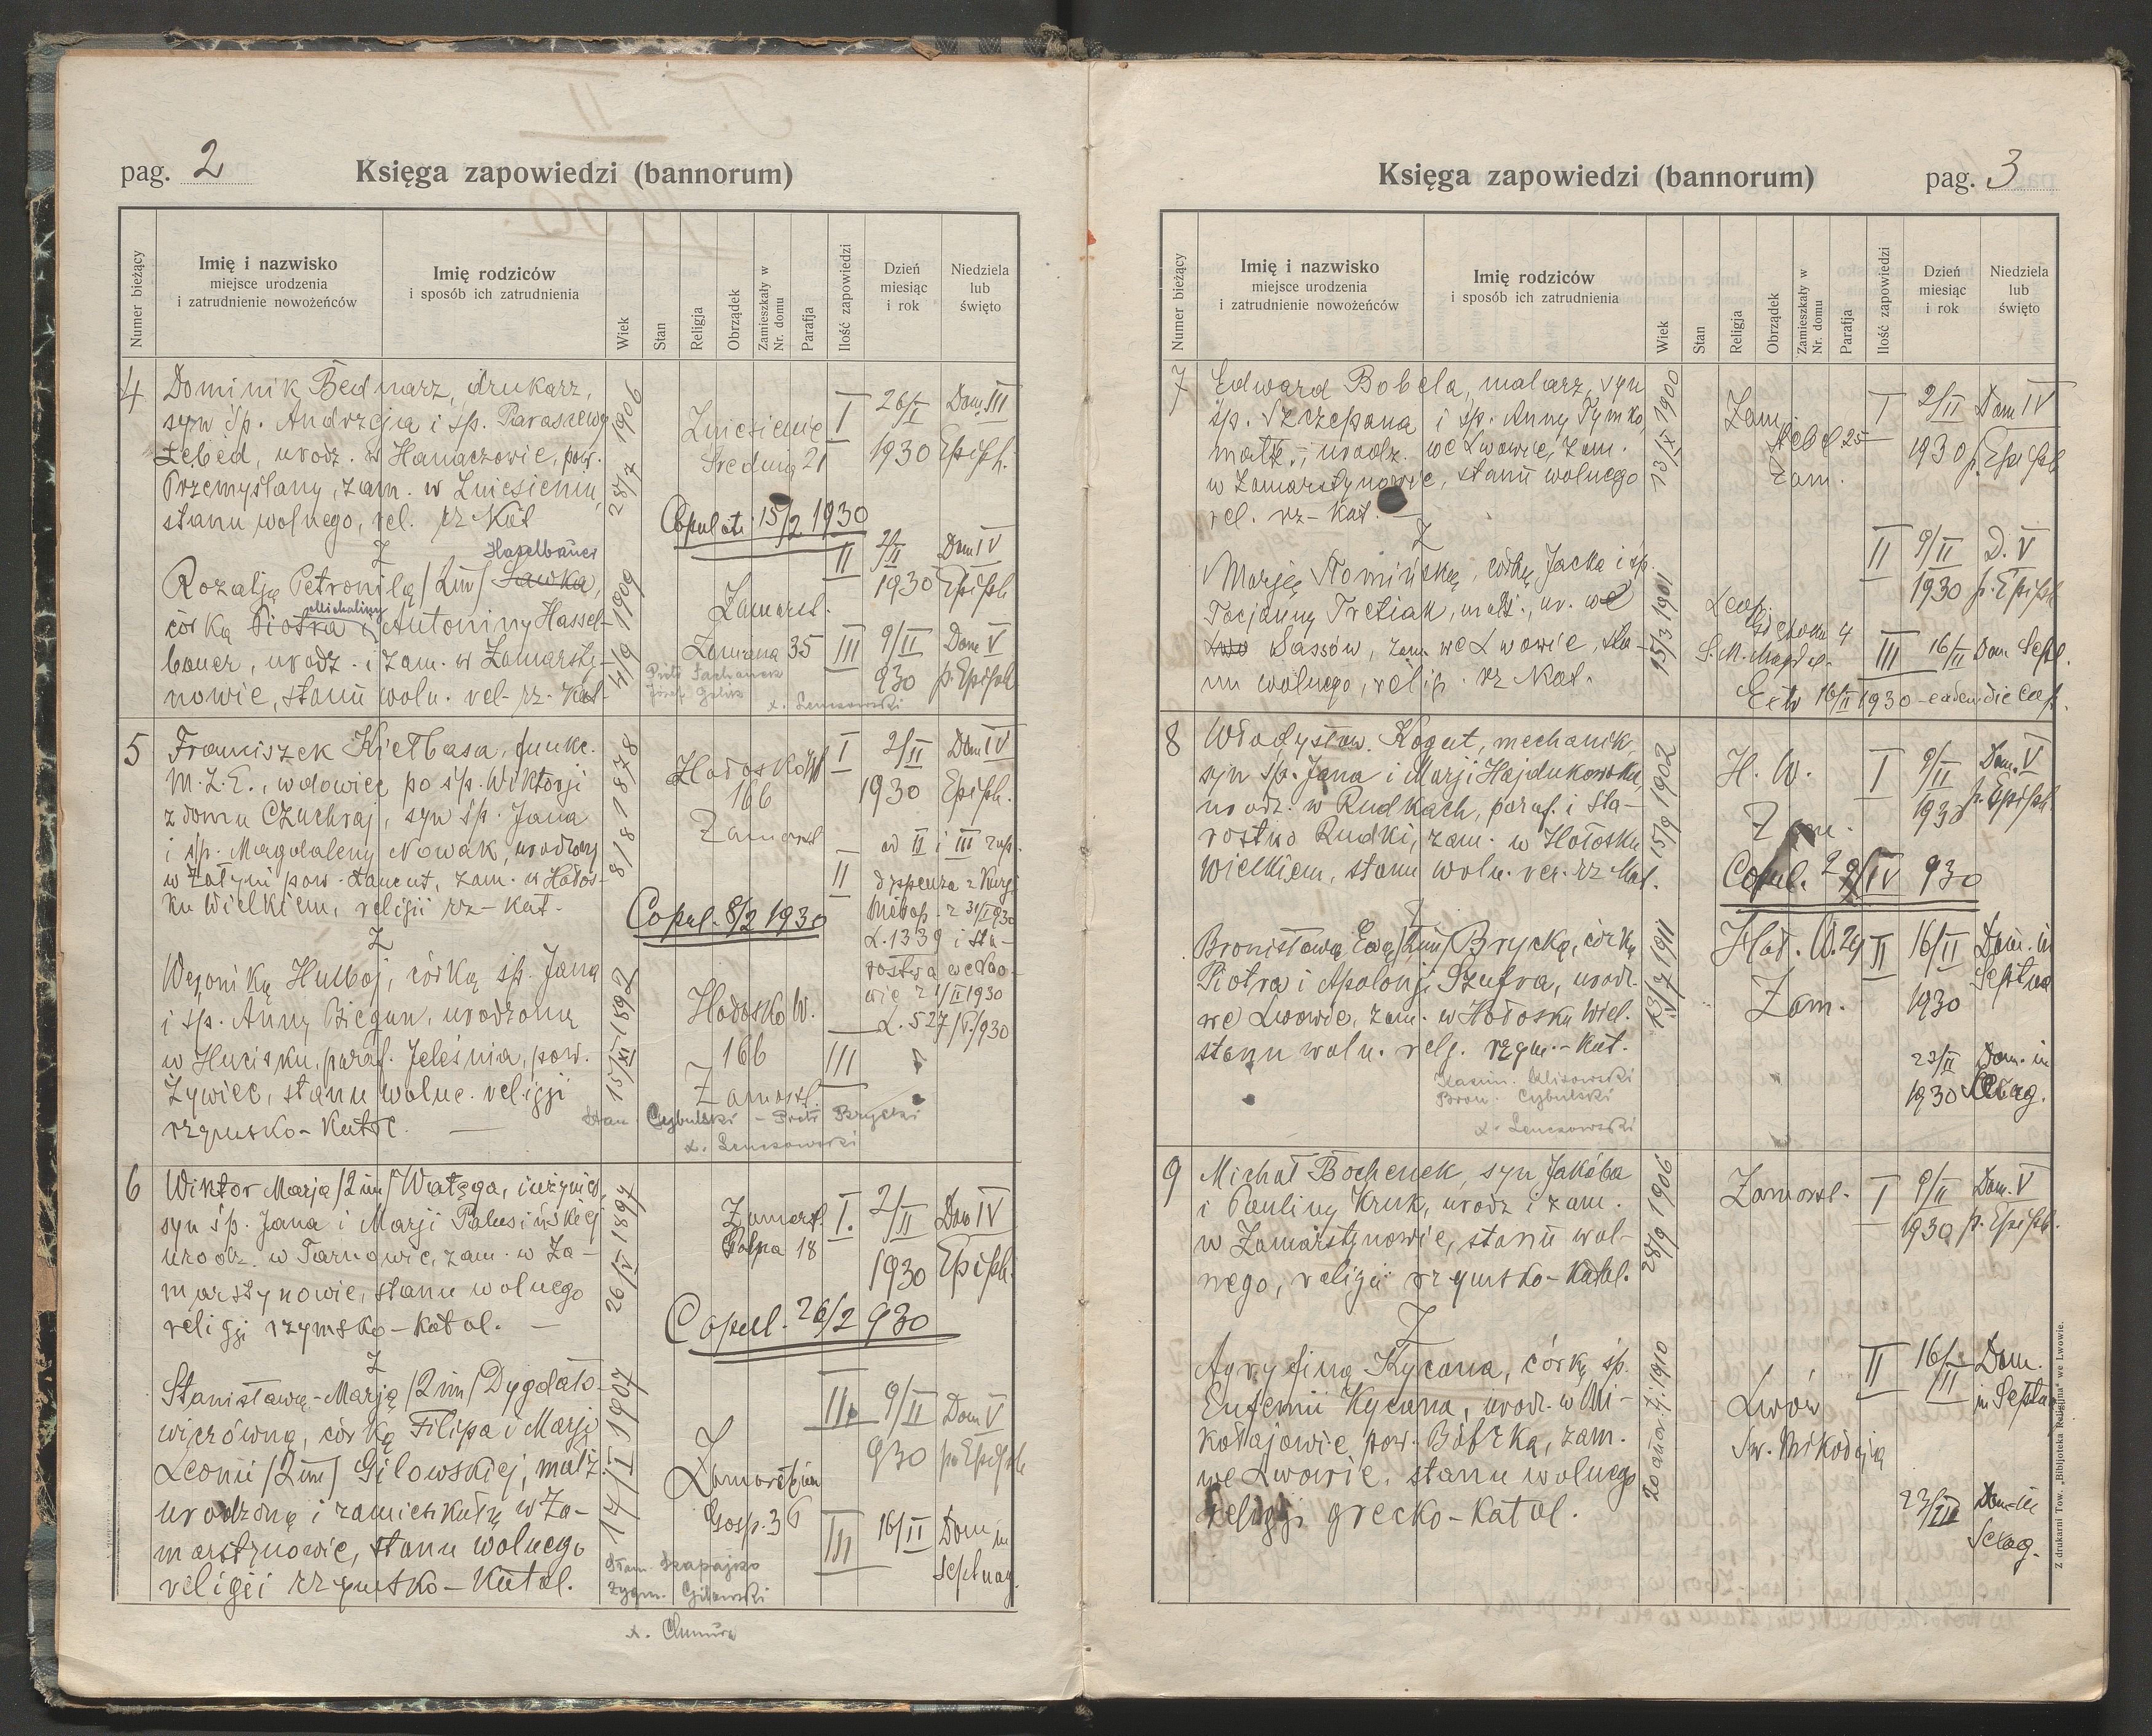 pag. 2
Księga zapowiedzi (bannorum)
Numer bieżący
Imię i nazwisko
miejsce urodzenia
i zatrudnienie nowożeńców
Imię rodziców
i sposób ich zatrudnienia
Wiek
Stan
Religja
Obrządek
Zamieszkały w
Nr. domu
Parafja
Ilość zapowiedzi
Dzień
miesiąc
i rok
Niedziela
lub
święto
4
Dominik Bednarz, drukarz,
syn śp. Andrzeja i śp. Paraszewy
Łebed, urodz. w Hanaczowie, pow.
Przemyślany, zam. w Zniesieniu,
stanu wolnego, rel. rz Kat
28/7 1906
Zniesienie
Średnia 21
I 26/I Dom III
1930 Epiph.
Copulati 15/2 1930
Z
Haselbauer
Rozalją Petronilą /2im/ Sawka,
Michaliny
córką Piotra i Antoniny Hassel-
bauer, urodz. i zam. w Zamarsty-
nowie, stanu woln. rel. rz. Kat
4/9 1909
II 2/II Dom IV
1930 Epiph
Zamarst.
35
III 9/II Dom V
930 p. Epiph
5
Franciszek Kiełbasa, funkc.
M.Z.E., wdowiec po śp. Wiktorji
z domu Czuchraj, syn śp. Jana
i śp. Magdaleny Nowak, urodzony
w Żołyni pow. Łańcut, zam. w Hołos-
ku Wielkiem, religii rz-kat.
8/8 1878
Hołosko W
166
Zamarst
I 2/II Dom IV
1930 Epiph.
od II i III zap.
II dyspenza z Kurji
Metrop. z 31/I 930
L. 1339 i sta-
rostwa we Lwo-
wie z 1/II 1930
L. 527/V./930
Copul. 8/2 1930
Z
Weroniką Hulboj, córką śp. Jana
i śp. Anny Biegun, urodzoną
w Hucisku, paraf. Jeleśnia, pow.
Żywiec, stanu wolne. religji
rzymsko-katol.
15/XI 1892
Hołosko W.
166
Zamarst.
III
Stan. Cybulski - Piotr Brycki
x. Lenczowski
6
Wiktor Marja /2im/ Wałęga, inżynier,
syn śp. Jana i Marji Palusińskiej
urodz. w Tarnowie, zam. w Za-
marstynowie, stanu wolnego
religji rzymsko-katol.
Zamarst.
Polna 18
I. 2/II Dom IV
1930 Epiph.
Copul. 26/2 930
Z
Stanisławą-Marją /2im/ Dygdało-
wiczówną, córką Filipa i Marji
Leonii /2im/ Gilowskiej, małż.
urodzoną i zamieszkałą w Za-
marstynowie, stanu wolnego
religii rzymsko-katol.
14/I 1907
II. 9/II Dom V
930 p. Epiph
Gosp. 36
III 16/II Dom in
Septuag.
Zygm. Gilowski
x. Chmura
Księga zapowiedzi (bannorum)
pag. 3
Numer bieżący
Imię i nazwisko
miejsce urodzenia
i zatrudnienie nowożeńców
Imię rodziców
i sposób ich zatrudnienia
Wiek
Stan
Religja
Obrządek
Zamieszkały w
Nr. domu
Parafja
Ilość zapowiedzi
Dzień
miesiąc
i rok
Niedziela
lub
święto
7
Edward Bobela, malarz, syn
śp. Szczepana i śp. Anny Tymko,
małż., urodz. we Lwowie, zam.
w Zamarstynowie, stanu wolnego
rel. rz-kat.
13/IX 1900
Zam.
25
Zam.
I 2/II Dom IV
1930 p. Epiph
Z
Marją Słomińską, córką Jacka i śp.
Tacjanny Tretiak, małż., ur. we
Sassów, zam. we Lwowie, sta-
nu wolnego, relig. rz kat.
15/3 1901
II 9/II D. V
1930 p. Epiph
S. M. Magdal.
III 16/II Dom Sept.
16/II 1930 - eadem die
8
Władysław Kogut, mechanik,
syn śp. Jana i Marji Hajdukowska,
urodz. w Rudkach, paraf. i sta-
rostwo Rudki, zam. w Hołosku
Wielkiem, stanu woln. rel. rz kat.
15/9 1902
H. W.
Zam.
I 9/II Dom. V
1930 p. Epiph
Copul. 930
Z
Bronisławą Ewą /2im/ Brycką, córką
Piotra i Apolonji Szufra, urodz.
we Lwowie, zam. w Hołosku Wiel.
stanu woln. relg. rzym.-kat.
1911
Hoł. W. 29
Zam.
II 16/II Dom. in
1930 Septua
23/II Dom. in
1930 Sexag.
Kazim. Klisowski
Bron. Cybulski
x. Lenczowski
9
Michał Bochenek, syn Jakóba
i Pauliny Kruk, urodz i zam.
w Zamarstynowie, stanu wol-
nego, religii rzymsko-katol.
28/9 1906
Zamarst.
I 9/II Dom. V
1930 p. Epiph.
Z
Agryfiną Kycana, córką śp.
Eufemii Kycana, urodz. w Mi-
kołajowie pow. Bóbrka, zam.
we Lwowie, stanu wolnego
religji grecko-katol.
Lwów
Św. Mikołaja
II 16/II Dom.
in Septuag
23/II Dom in
Sexag.
Z drukarni Tow. „Bibljoteka Religijna" we Lwowie.